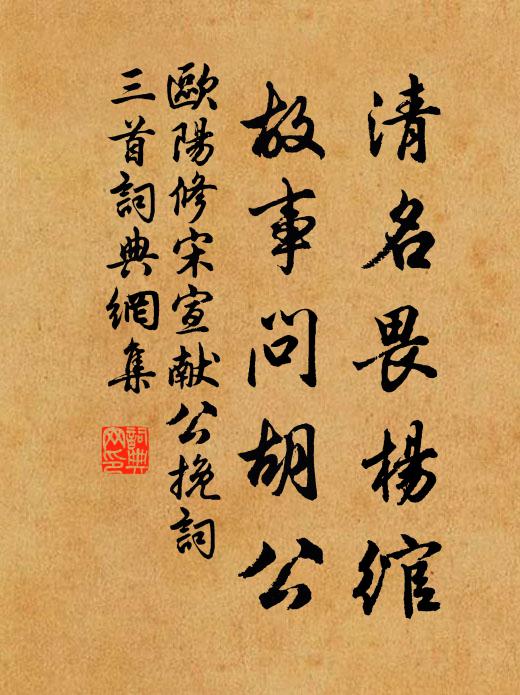 清名畏楊綰
故事問胡公
歐陽修宋宣献公挽詞
三首詞典網集
詞典網印